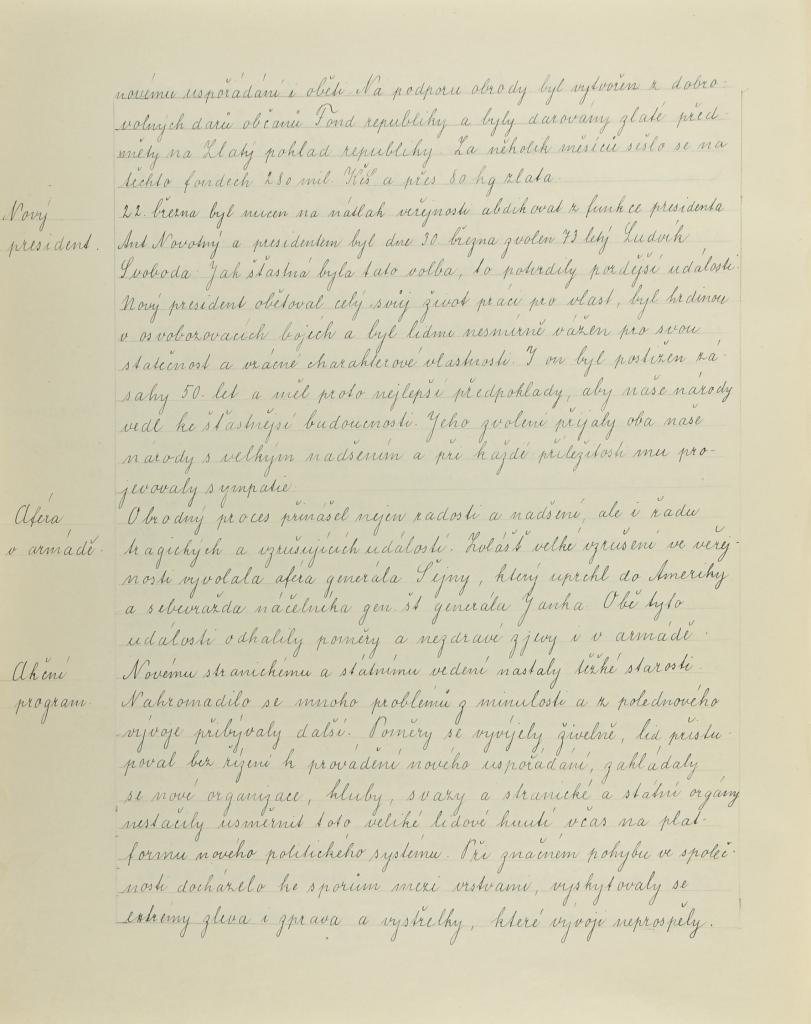 novému uspořádání i oběti Na podporu obrody byl vytvořen z dobro-
volných darů občanů Fond republiky a byly darovány zlaté před-
měty na Zlatý poklad republiky. Za několik měsíců sešlo se na
těchto fondech 280 mil. Kčs a přes 80 kg zlata.
Nový
president.
22. března byl nucen na nátlak veřejnosti abdikovat z funkce presidenta
Ant Novotný a presidentem byl dne 30 března zvolen 73 letý Ludvík
Svoboda. Jak šťastná byla tato volba, to potvrdily pozdější události.
Nový president obětoval celý svůj život práci pro vlast, byl hrdinou
v osvobozovacích bojích a byl lidmi nesmírně vážen pro svou
statečnost a vzácné charakterové vlastnosti. I on byl postižen zá-
sahy 50. let a měl proto nejlepší předpoklady, aby naše národy
vedl ke šťastnější budoucnosti. Jeho zvolení přijaly oba naše
národy s velkým nadšením a při každé příležitosti mu pro-
jevovaly sympatie.
Aféra
v armádě.
Obrodný proces přinášel nejen radosti a nadšení, ale i řadu
tragických a vzrušujících událostí. Zvlášť velké vzrušení ve veřej-
nosti vyvolala aféra generála Šejny, který uprchl do Ameriky
a sebevražda náčelníka gen. št generála Janka. Obě tyto
události odhalily poměry a nezdravé zjevy i v armádě.
Akční
program.
Novému stranickému a státnímu vedení nastaly těžké starosti.
Nahromadilo se mnoho problémů z minulosti a z polednového
vývoje přibývaly další. Poměry se vyvíjely živelně, lid přistu-
poval bez řízení k provádění nového uspořádání, zakládaly
se nové organizace, kluby, svazy a stranické a státní orgány
nestačily usměrnit toto veliké lidové hnutí včas na plat-
formu nového politického systému. Při značném pohybu ve společ-
nosti docházelo ke sporům mezi vrstvami, vyskytovaly se
extrémy zleva i zprava a výstřelky, které vývoji neprospěly.